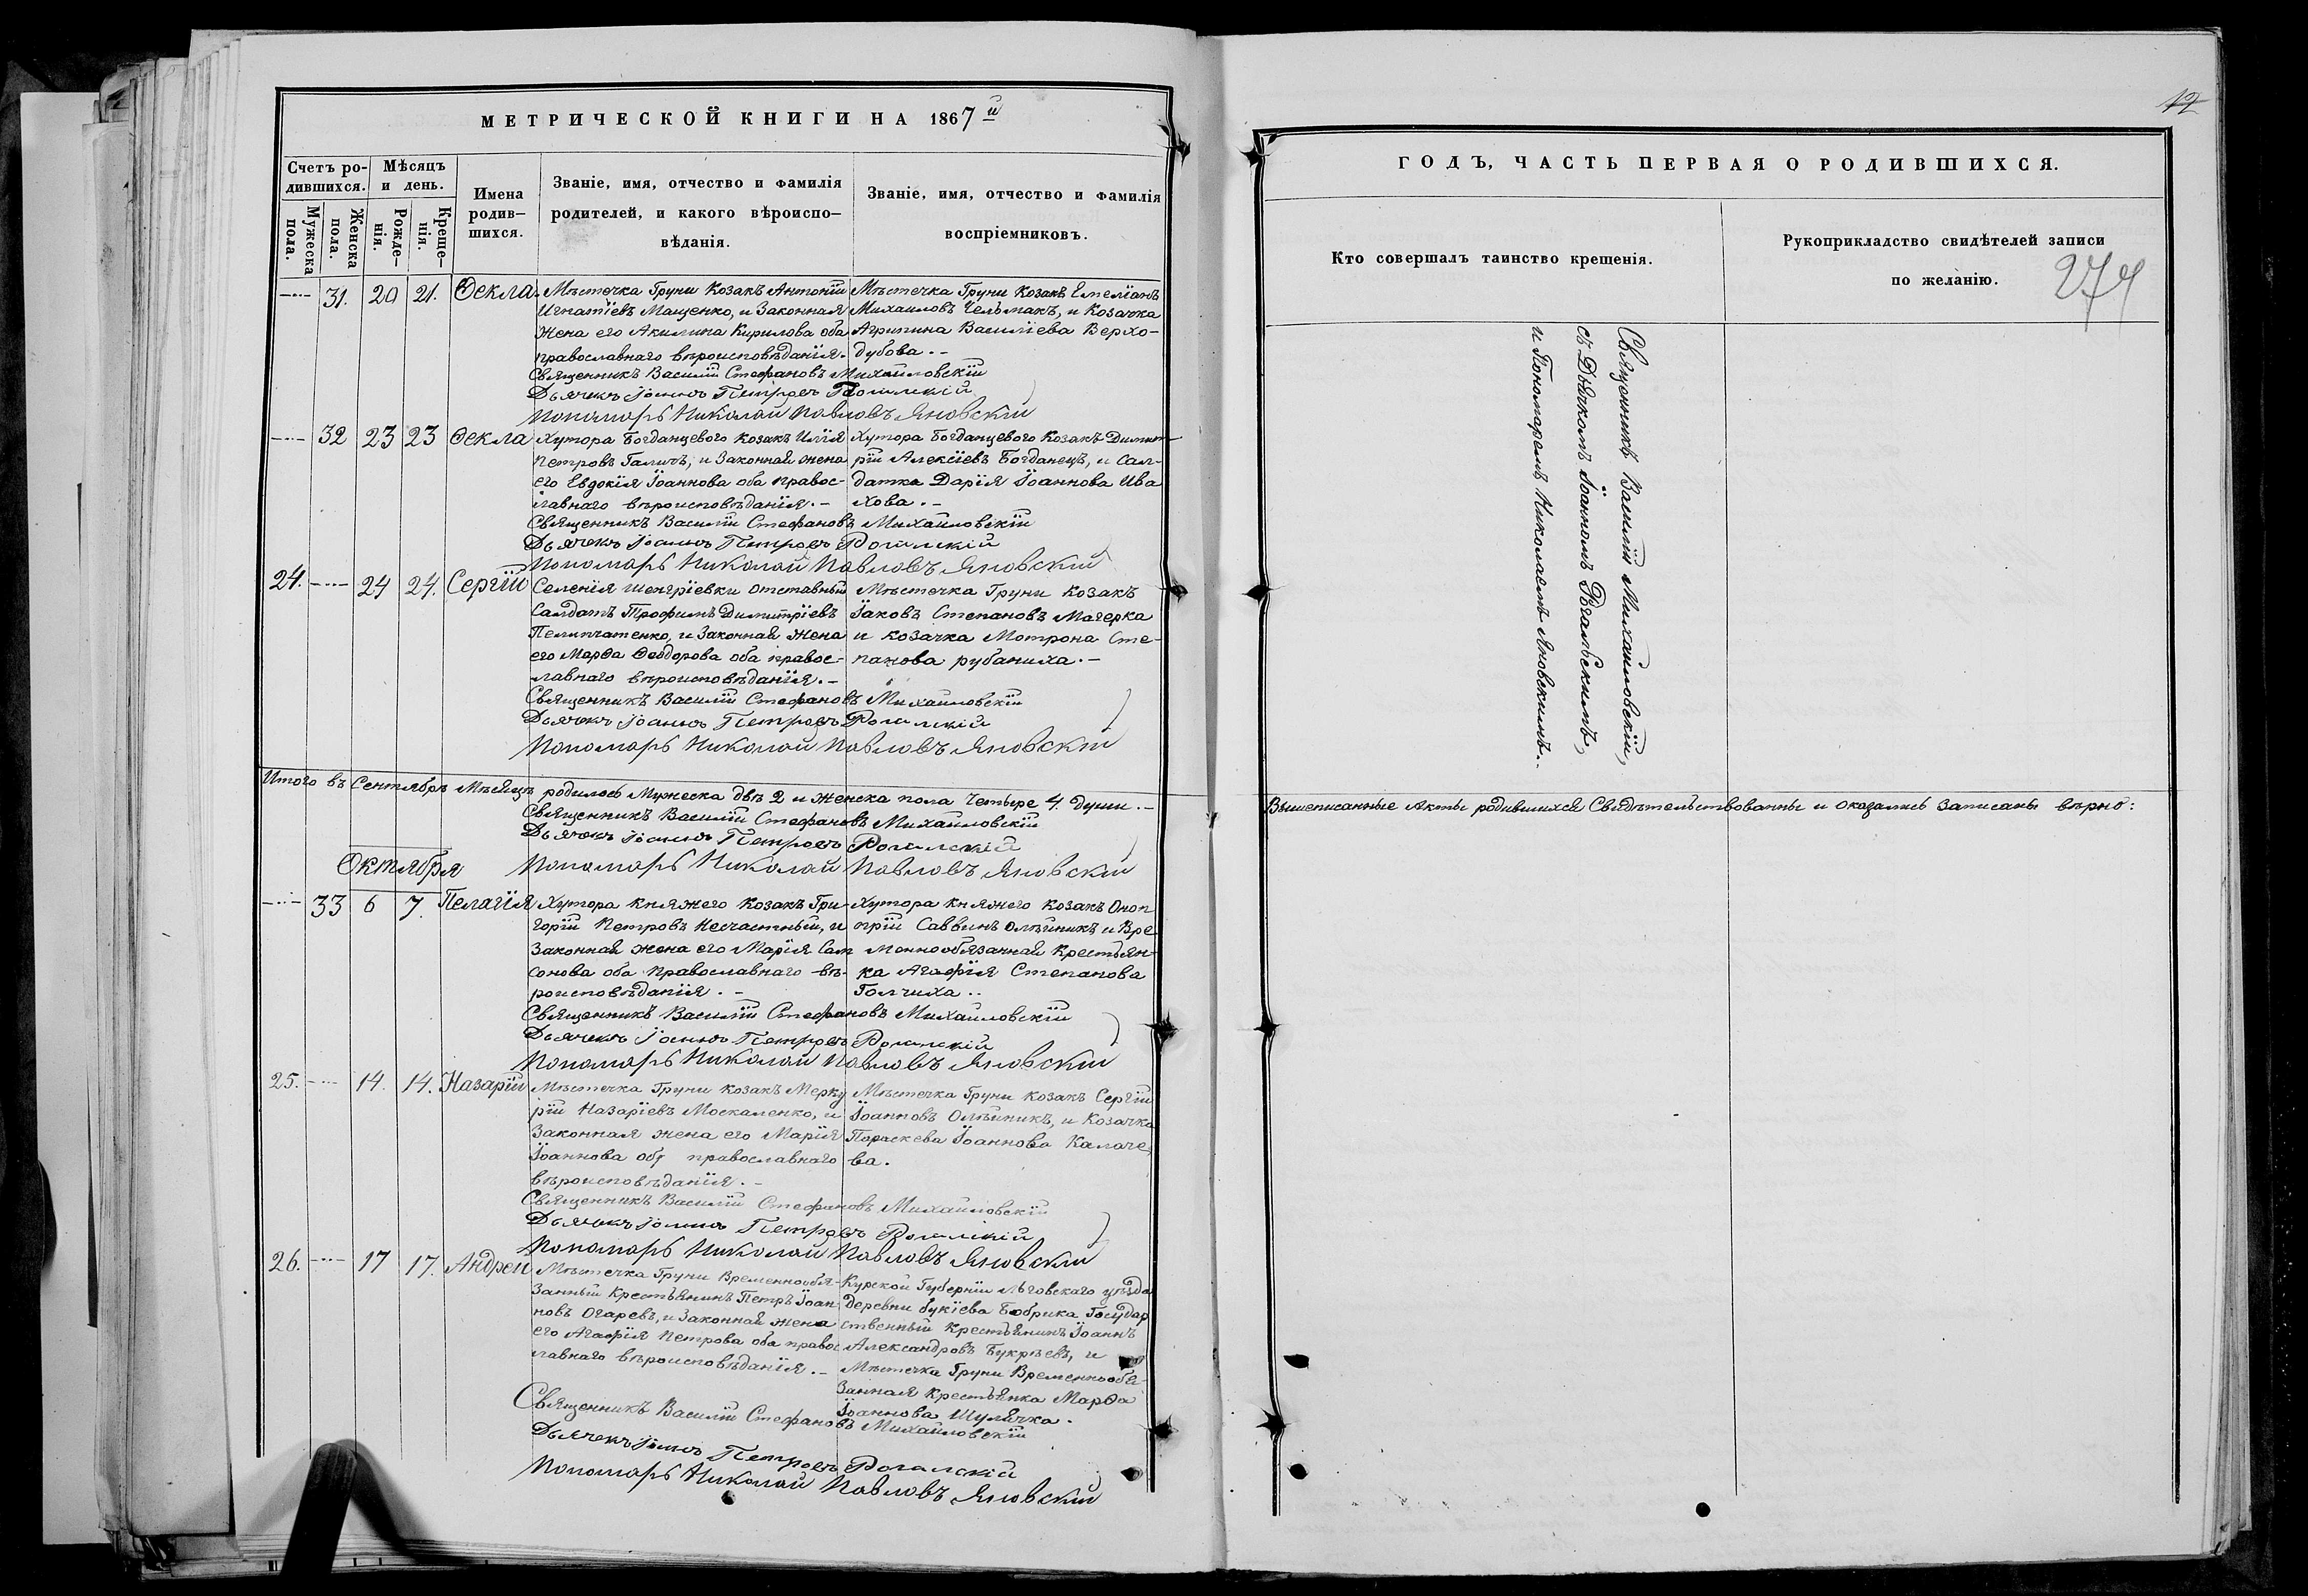 МЕТРИЧЕСКОЙ КНИГИ НА 1867й
Счетъ ро-
дившихся.
Мѣсяцъ
и день.
Мужеска
пола.
Женска
пола.
Рожде-
нія.
Креще-
нія.
Имена
родив-
шихся.
Званіе, имя, отчество и фамилія
родителей, и какого вѣроиспо-
вѣданія.
Званіе, имя, отчество и фамилія
воспріемниковъ.
31. 20 21. Ѳекла.
Мѣстечка Груни Козакъ Антоній
Игнатіевъ Мащенко, и Законная
жена его Акилина Кирилова оба
православнаго вѣроисповѣданія.
Мѣстечка Груни Козакъ Емеліанъ
Михаиловъ Чельмакъ, и Козачка
Агрипина Василіева Верхо-
дубова.-
Священникъ Василій Стефановъ Михайловскій
Дьячекъ Іоаннъ Петровъ Рогальскій
Пономарь Николай Павловъ Яновскій
32 23 23 Ѳекла
Хутора Богданцевого Козакъ Илія
Петровъ Галичъ, и Законная жена
его Евдокія Іоаннова оба правос-
лавнаго вѣроисповѣданія.-
Хутора Богданцевого Козакъ Димит-
рій Алексіевъ Богданецъ, и Сал-
датка Дарія Іоаннова Ива
хова.-
Священникъ Василій Стефановъ Михайловскій
Дьячекъ Іоаннъ Петровъ Рогальскій
Пономарь Николай Павловъ Яновскій
24. 24 24. Сергій
Селенія Шенгріевки отставный
Салдатъ Трофимъ Димитріевъ
Пелипчатенко, и Законная жена
его Марѳа Ѳеодорова оба правос-
лавнаго вѣроисповѣданія.-
Мѣстечка Груни Козакъ
Іаковъ Степановъ Магерка
и козачка Мотрона Сте-
панова рубаниха.-
Священникъ Василій Стефановъ Михайловскій
Дьячекъ Іоаннъ Петровъ Рогальскій
Пономарь Николай Павловъ Яновскій
Итого въ Сентябрѣ Мѣсяцѣ родилось Мужеска двѣ 2 и женска пола Четыре 4. Души.-
Священникъ Василій Стефановъ Михайловскій
Дьячекъ Іоаннъ Петровъ Рогальскій
Пономарь Николай Павловъ Яновскій
Октября
33 6 7. Пелагія
Хутора Княжего Козакъ Гри-
горій Петровъ Несчастный, и
Законная жена его Марія Сам
сонова оба православнаго вѣ-
роисповѣданія.-
Хутора Княжего козакъ Оноп
прій Саввинъ Олѣйникъ и Вре
меннообязанная Крестьян-
ка Агафія Степанова
Голчиха..
Священникъ Василій Стефановъ Михайловскій
Дьячекъ Іоаннъ Петровъ Рогальскій
Пономарь Николай Павловъ Яновскій
25. 14. 14. Назарій
Мѣстечка Груни козакъ Мерку
рій Назаріевъ Москаленко, и
Законная жена его Марія
Іоаннова оба православнаго
вѣроисповѣданія.-
Мѣстечка Груни козакъ Сергій
Іоанновъ Олѣйникъ, и Козачка
Параскева Іоаннова Калаче
ва.
Священникъ Василій Стефановъ Михайловскій
Дьячекъ Іоаннъ Петровъ Рогальскій
Пономарь Николай Павловъ Яновскій
26. 17 17. Андрей
Мѣстечка Груни Временнообя-
занный Крестьянинъ Петръ Іоан
новъ Огаревъ, и Законная жена
его Агафія Петрова оба правос
лавнаго вѣроисповѣданія.-
Курской Губерніи Льговскаго уѣзда
деревни букіева Бобрика Государ
ственный Крестьянинъ Іоаннъ
Александровъ Букрѣевъ, и
Мѣстечка Груни Временнообя-
занная крестьянка Марѳа
Іоаннова Шулячка.
Священникъ Василій Стефановъ Михайловскій
Дьячекъ Іоаннъ Петровъ Рогалскій
Пономарь Николай Павловъ Яновскій
12
ГОДЪ, ЧАСТЬ ПЕРВАЯ О РОДИВШИХСЯ.
Кто совершалъ таинство крещенія.
Рукоприкладство свидѣтелей записи
по желанію.
274
Священникъ Василій Михайловскій,
съ Дьячкомъ Іоанномъ Рогальскимъ,
и Пономаремъ Николаемъ Яновскимъ..
Вышеписанные Акты родившихся Свидѣтельствованны и оказались Записаны вѣрно: